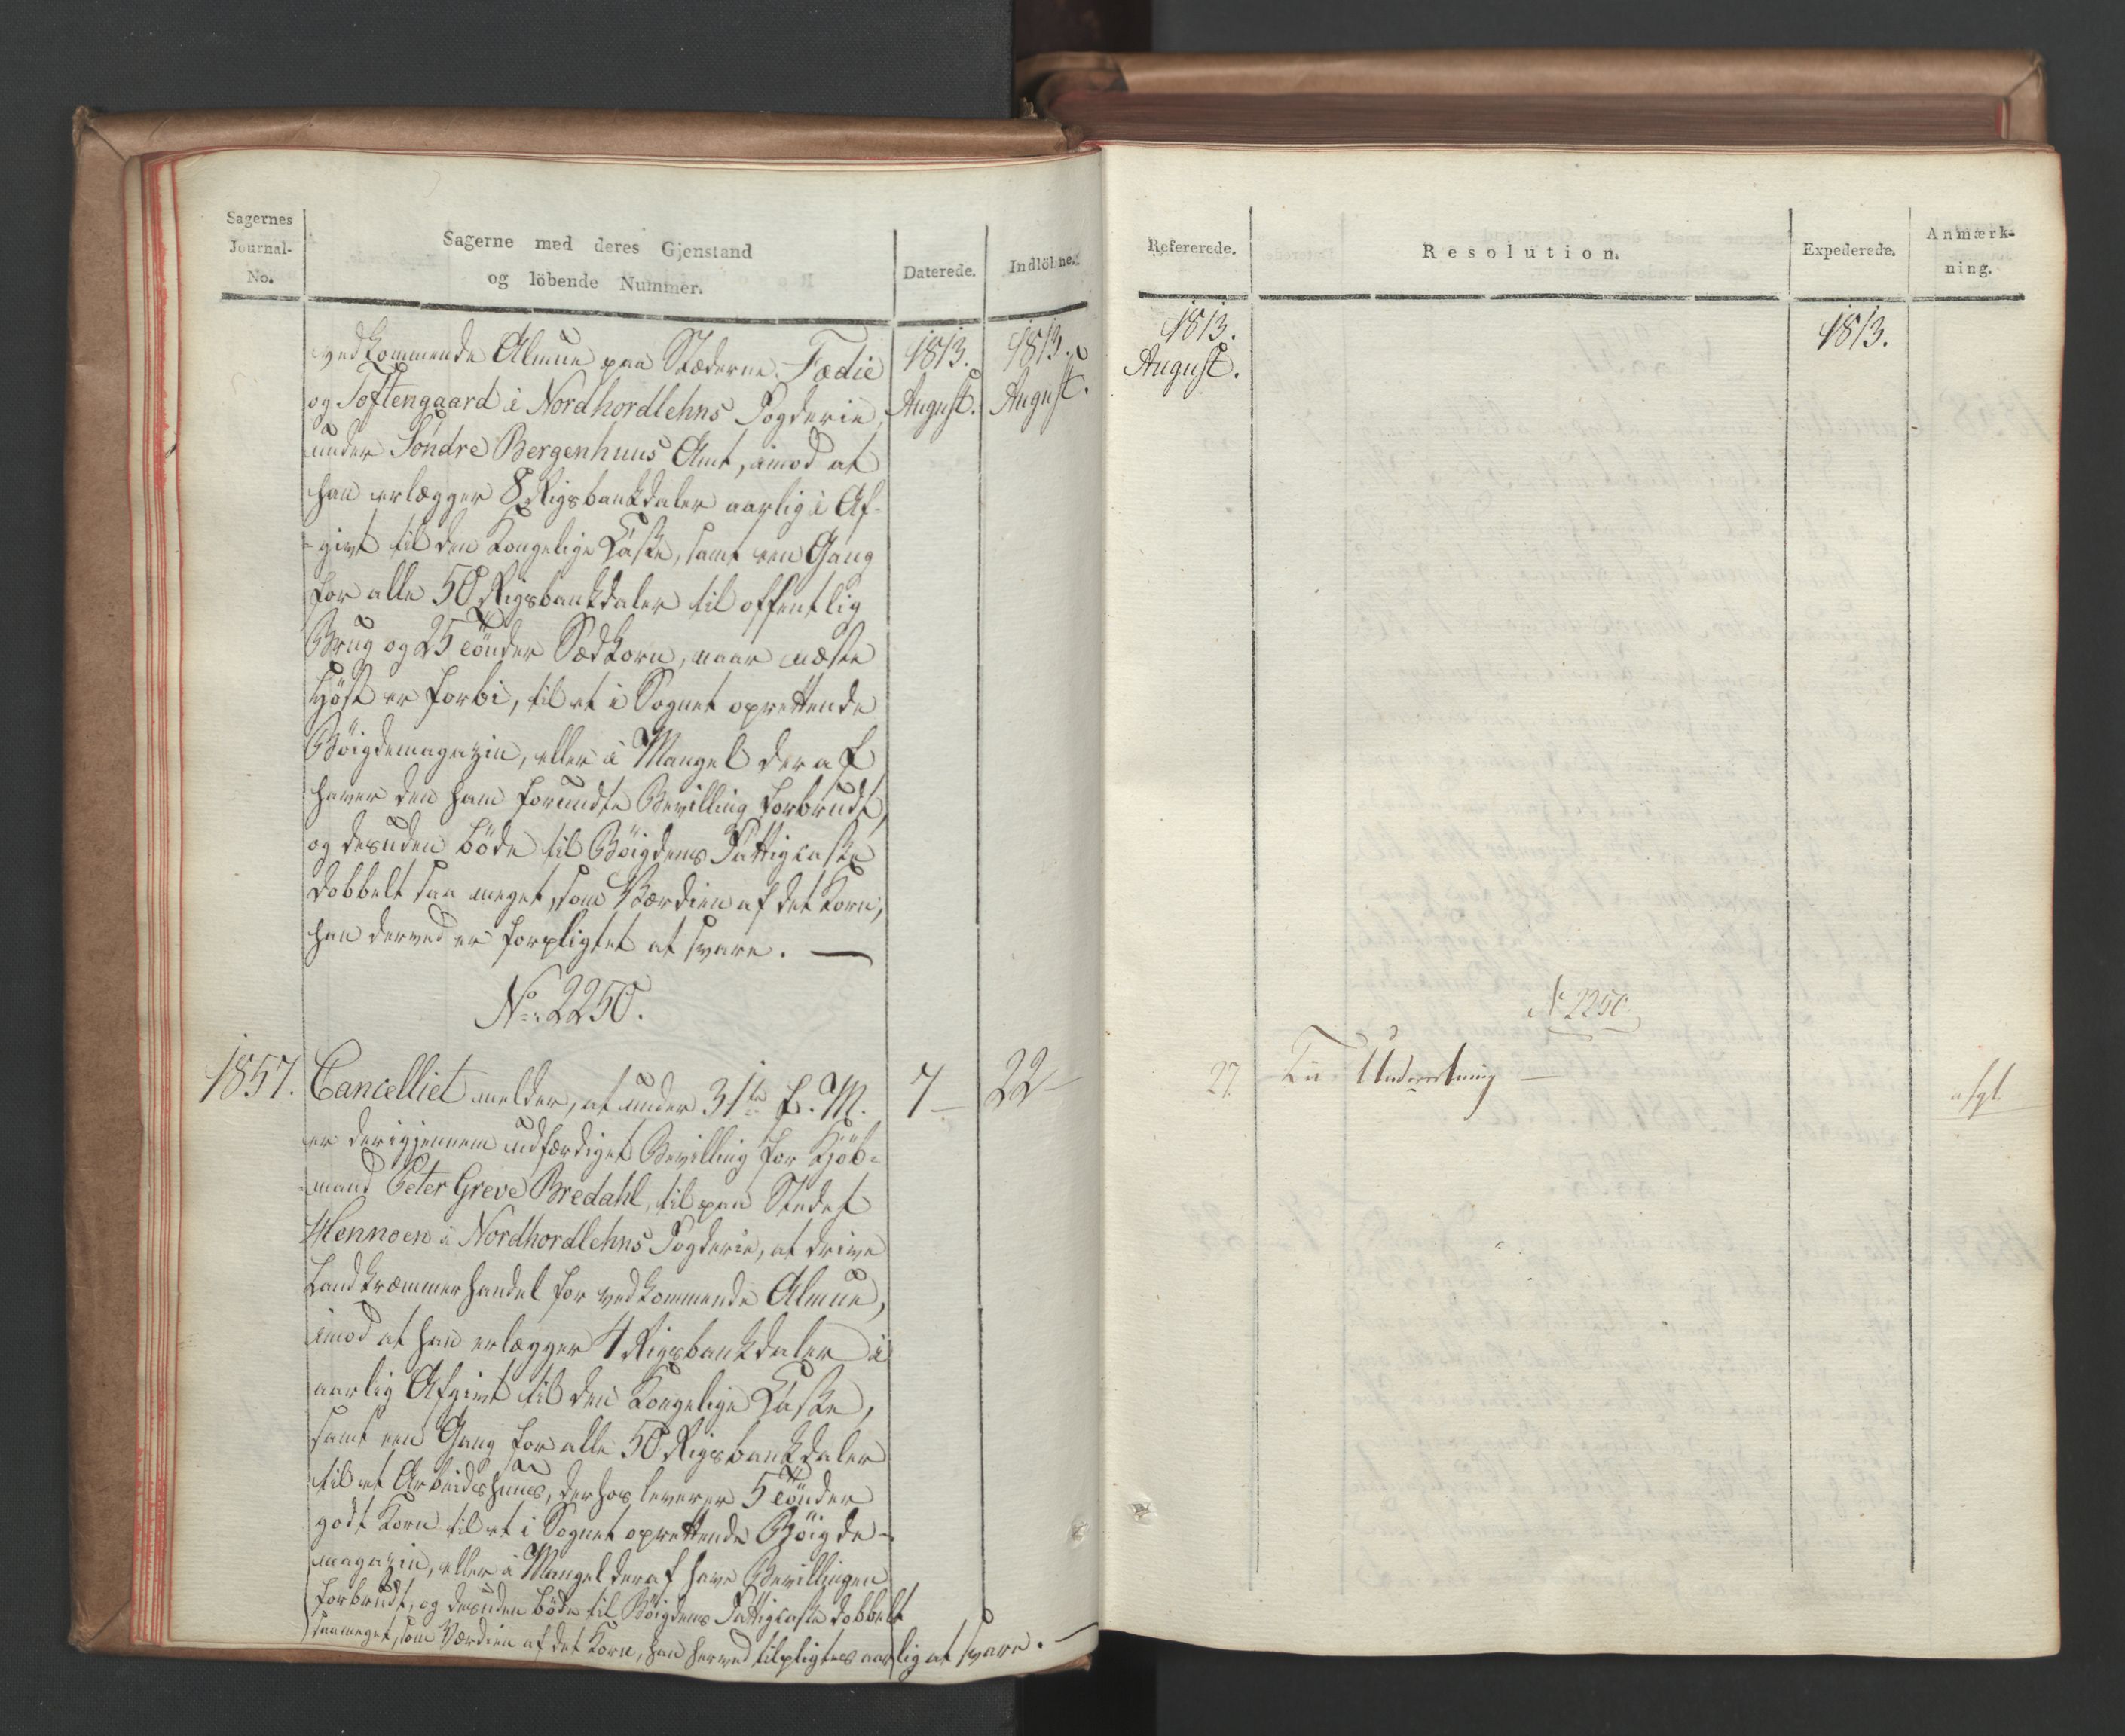 Sagernes
Journal-
No.
Sagerne med deres Gjenstand
og löbende Nummer.
Daterede.
Indlöbne.
1813.
August.
1813.
August.
vedkommende Almue paa Stæderne Fædie
og Toftengaard i Nordhordlehns Fogderie
under Söndre Bergenhuus Amt, imod at
han erlægger 8 Rigsbankdaler aarlig i Af-
givt til den Kongelige Casse, samt een Gang
for alle 50 Rigsbankdaler til offentlig
Brug og 25 Tönder Sædkorn, naar næste
Höst er forbi, til et i Sognet oprettende
Böigdemagazin, eller i Mangel deraf
haver den ham forundte Bevilling forbrudt,
og desuden böde til Böigdens Fattigcasse
dobbelt saa meget, som Værdien af det Korn,
han derved er forpligtet at svare. —
No. 2250.
1857.
Cancelliet melder, at under 31te f. M.
7 —
22 —
er derigjennem udfærdiget Bevilling for Kjöb-
mand Peter Greve Bredahl, til paa Stedet
Hennoen i Nordhordlehns Fogderie, at drive
Landkræmmerhandel for vedkommende Almue,
imod at han erlægger 4 Rigsbankdaler i
aarlig Afgivt til den Kongelige Casse,
samt een Gang for alle 50 Rigsbankdaler
til et Arbeidshuus, derhos leverer 5 Tönder
godt Korn til et i Sognet oprettende Böigde-
magazin, eller i Mangel deraf have Bevillingen
forbrudt, og desuden böde til Böigdens Fattigcasse dobbelt
saameget, som Værdien af det Korn, han herved tilpligtes aarlig at svare. —
Refererede.
Resolution.
Expederede.
Anmærk-
ning.
1813.
August.
1813.
No 2250.
27.
Til Underretning —
afgl.